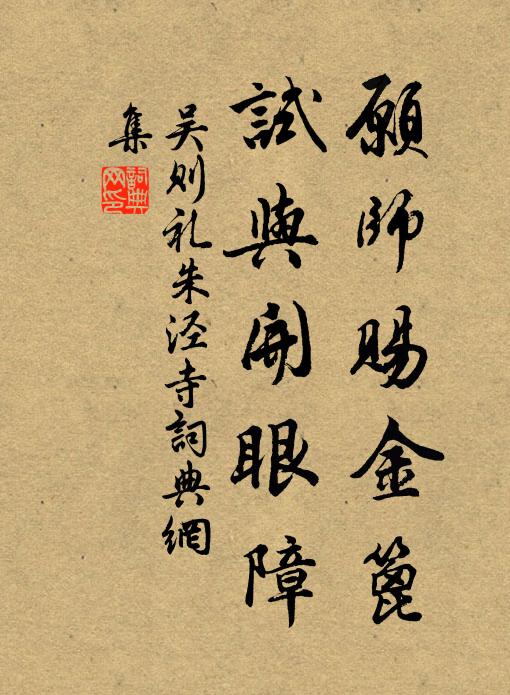 願師賜金篦
試與開眼障
吴则礼朱泾寺詞典網
集
詞典网印